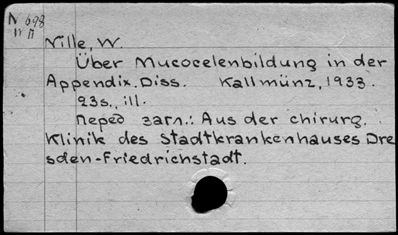 N 698
Nille, W.
Über Mucocelenbildung in der
Appendix. Diss. Kallmünz, 1933.
23s., ill.
Перед загл.: Aus der chirurg.
Klinik des Stadtkrankenhauses Dre
sden-Friedrichstadt.